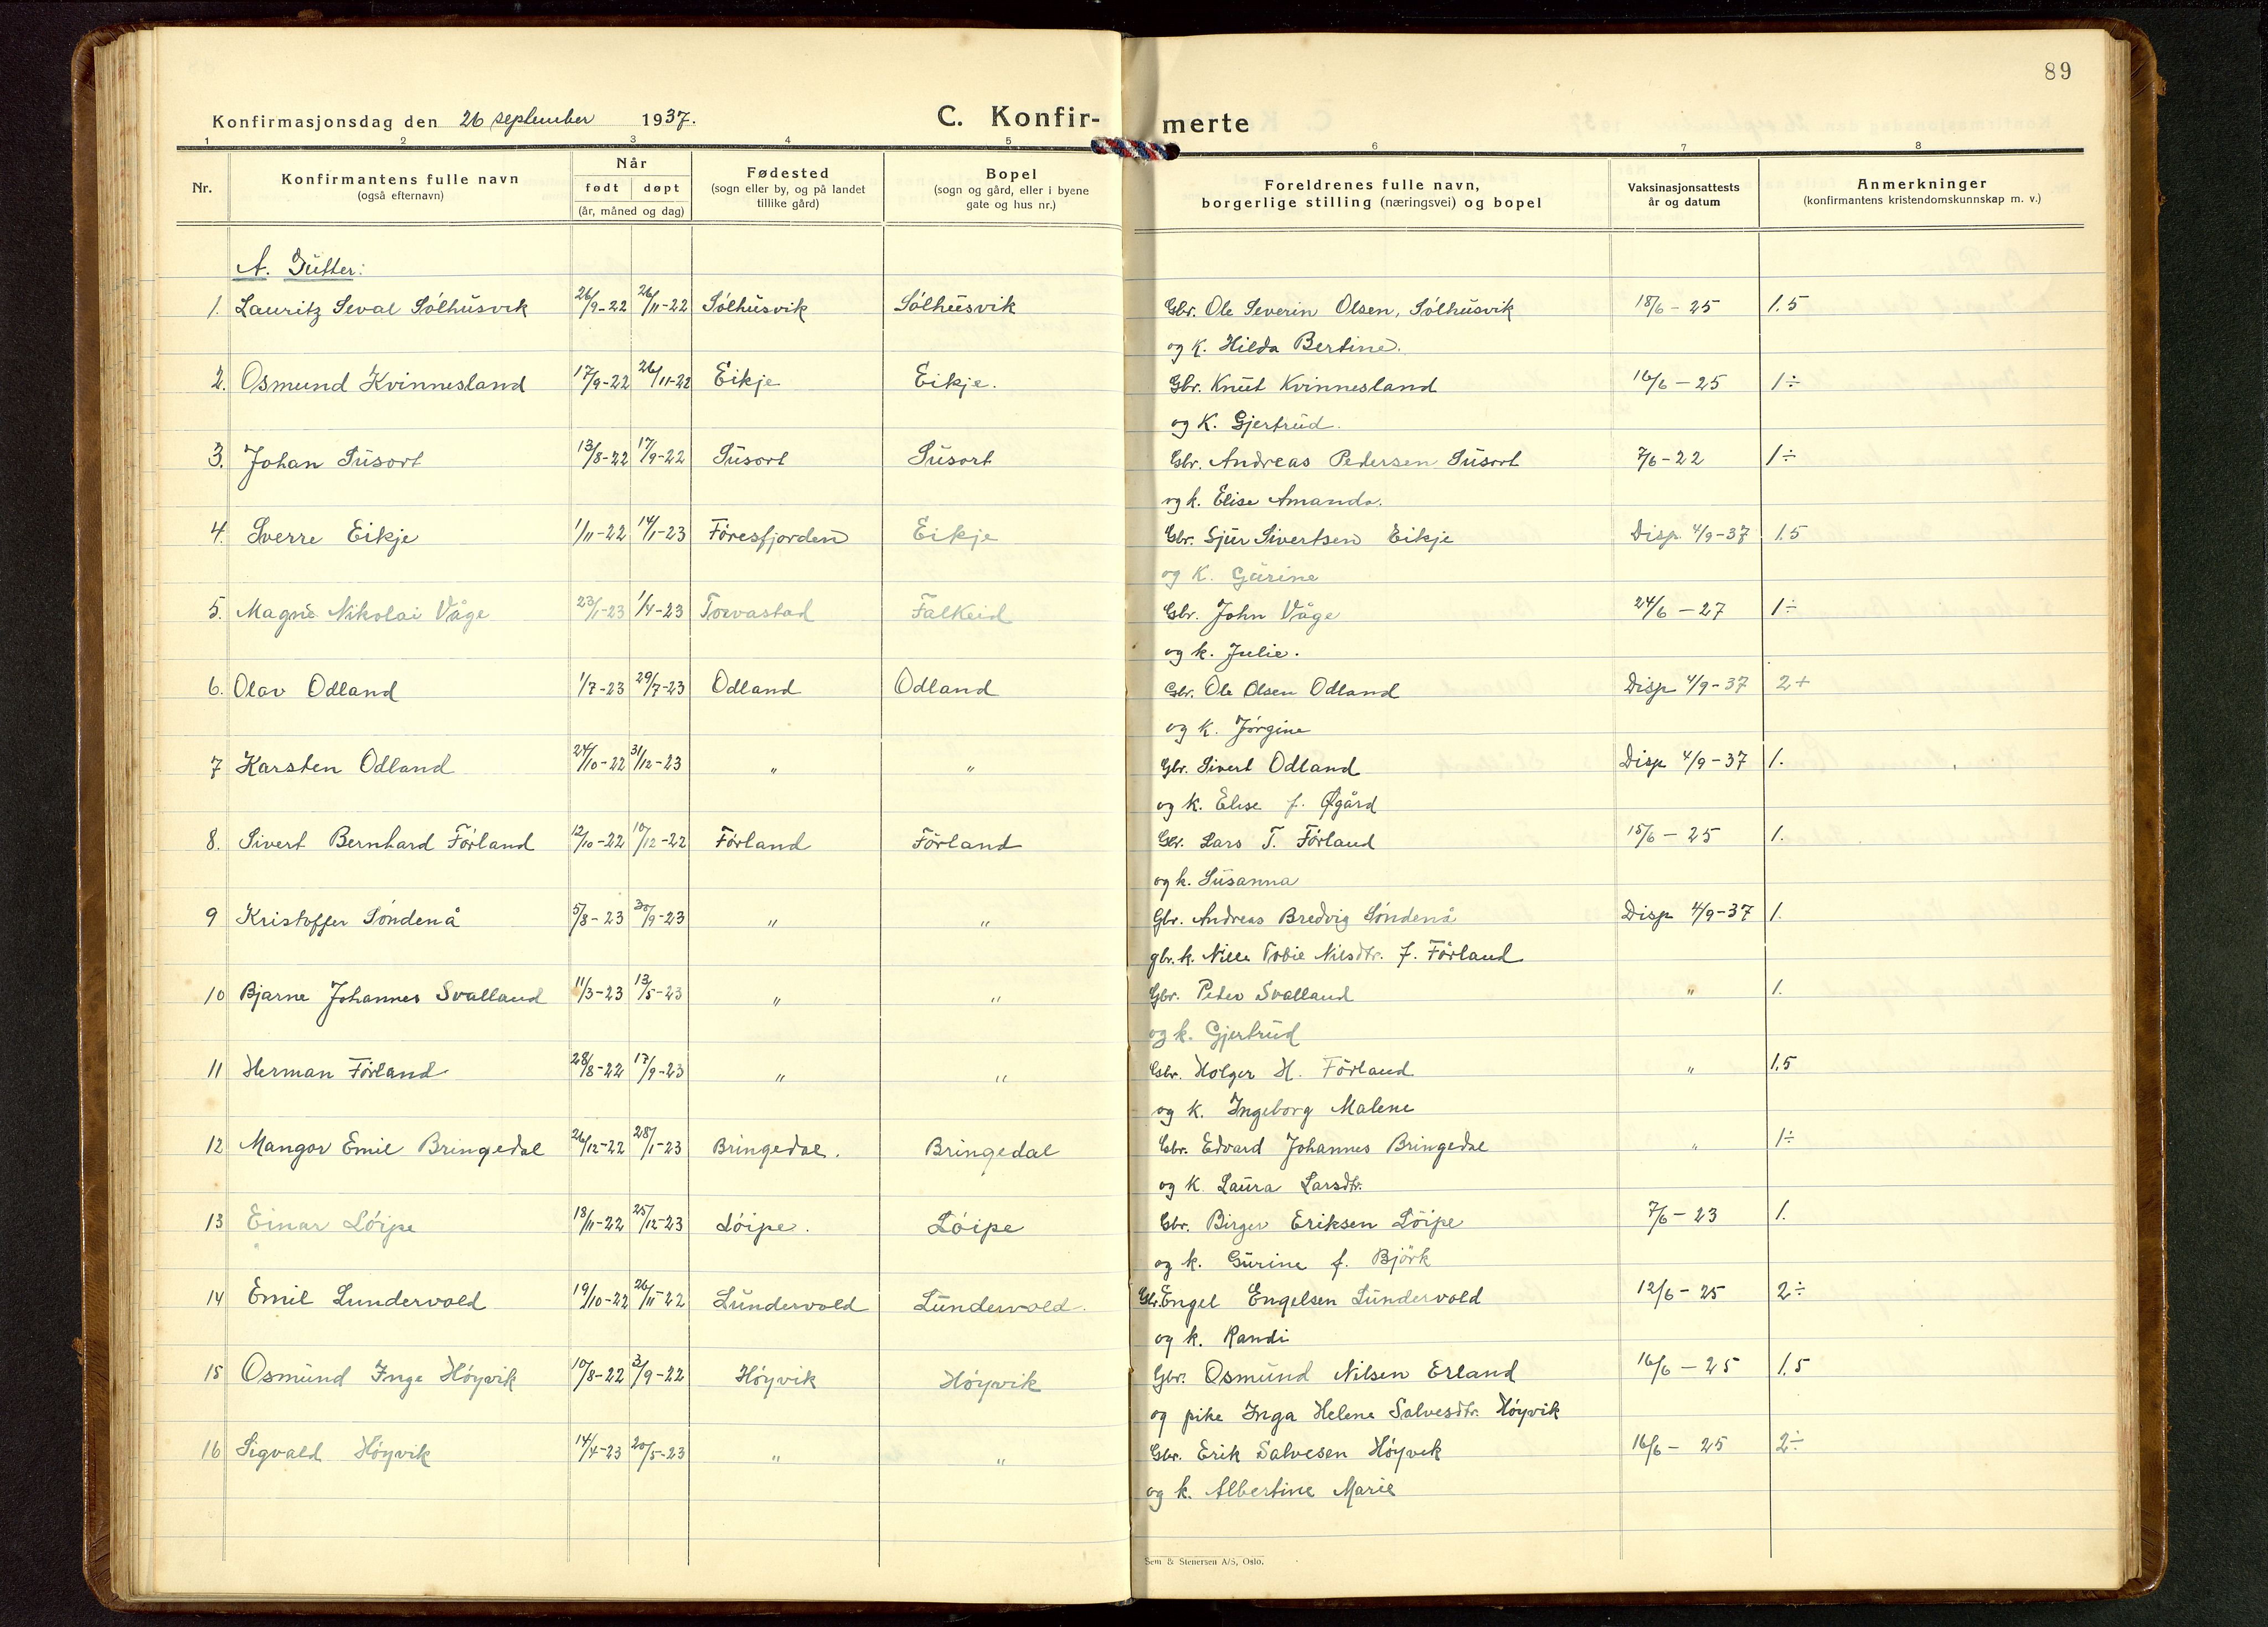 89
Konfirmasjonsdag den 26 september 1937. C. Konfir- merte
1 2 3 4 5 6 7 8
Nr. Konfirmantens fulle navn (også efternavn) Når født døpt (år, måned og dag) Fødested (sogn eller by, og på landet tillike gård) Bopel (sogn og gård, eller i byene gate og hus nr.) Foreldrenes fulle navn, borgerlige stilling (næringsvei) og bopel Vaksinasjonsattests år og datum Anmerkninger (konfirmantens kristendomskunnskap m. v.)
A. Gutter:
1. Lauritz Seval Sólhusvik 26/9-22 26/11-22 Sólhusvik Sólhusvik Gbr. Ole Severin Olsen, Sólhusvik 18/6-25 1.5
og K. Hilda Bertine.
2. Osmund Kvinnesland 17/9-22 26/11-22 Eikje Eikje. Gbr. Knut Kvinnesland 16/6-25 1÷
og K. Gjertrud.
3. Johan Susort 13/8-22 17/9-22 Susort Susort Gbr. Andreas Pedersen Susort 7/6-22 1÷
og k. Elise Amanda.
4. Sverre Eikje 1/11-22 14/1-23 Fóresfjorden Eikje Gbr. Sjur Sivertsen Eikje Disp. 4/9-37 1.5
og K. Gurine
5. Magne Nikolai Våge 23/1-23 1/4-23 Torvastad Falkeid Gbr. John Våge 24/6-27 1÷
og k. Julie.
6. Olav Odland 1/7-23 29/7-23 Odland Odland Gbr. Ole Olsen Odland Disp 4/9-37 2+
og K. Jórgine
7 Karsten Odland 24/10-22 31/12-23 " " Gbr. Sivert Odland Disp 4/9-37 1.
og K. Elise f. Øgård
8. Sivert Bernhard Fórland 12/10-22 10/12-22 Fórland Fórland Gbr. Lars T. Fórland 15/6-25 1.
og k. Susanna
9 Kristoffer Sóndenå 5/8-23 30/9-23 " " Gbr. Andreas Bredvig Sóndenå Disp 4/9-37 1.
gbr. k. Tobie Nilsdtr. f. Fórland
10 Bjarne Johannes Svalland 11/3-23 13/5-23 " " Gbr. Peder Svalland " 1.
og k. Gjertrud
11 Herman Fórland 28/8-22 17/9-23 " " Gbr. Holger H. Fórland " 1.5
og K. Ingeborg Malene
12 Mangor Emil Bringedal 26/12-22 28/1-23 Bringedal. Bringedal Gbr. Edvard Johannes Bringedal " 1÷
og K Laura Larsdtr.
13 Einar Lóipe 18/11-22 25/12-23 Lóipe. Lóipe Gbr. Birger Eriksen Lóipe 7/6-23 1.
og k. Gurine f. Bjórk
14 Emil Lundervold 19/10-22 26/11-22 Lundervold Lundervold. Gbr. Engel Engelsen Lundervold 12/6-25 2÷
og k. Randi
15 Osmund Inge Hóyvik 10/8-22 3/9-22 Hóyvik Hóyvik Gbr. Osmund Nilsen Erland 16/6-25 1.5
og pike Inga Helene Salvesdtr. Hóyvik
16 Sigvald Hóyvik 14/4-23 20/5-23 " " Gbr. Erik Salvesen Hóyvik 16/6-25 2÷
og k. Albertine Marie
Sem & Stenersen A/S, Oslo.